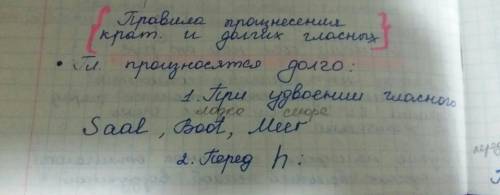 Правила произнесения
крат. и долгих гласных
• Гл. произносятся долго:
1. При удвоении гласного
лодка море
Saal, Boot, Meer
2. Перед h: